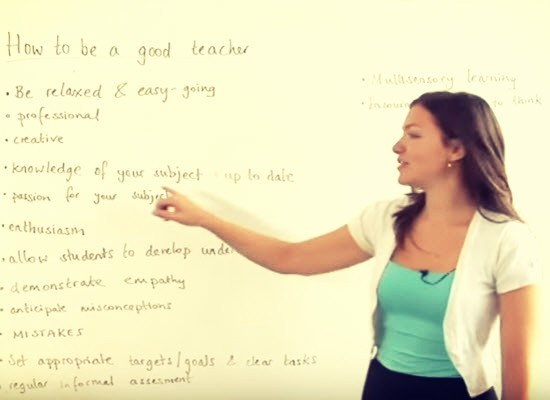 How to be a good teacher
• Be relaxed & easy-going
• professional
• creative
• knowledge of your subject - up to date
• passion for your subject
• enthusiasm
• allow students to develop
• demonstrate empathy
• anticipate misconceptions
• MISTAKES
• Set appropriate targets/goals & clear tasks
• regular informal assesment
• Multisensory learning
to think